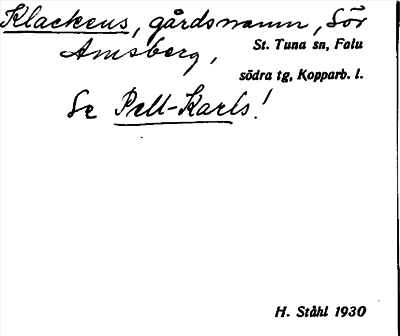 Klackens, gårdsnamn, Sör
Amsberg,
St. Tuna sn, Falu
södra tg, Kopparb. l.
Se Pell-Karls!
H. Ståhl 1930